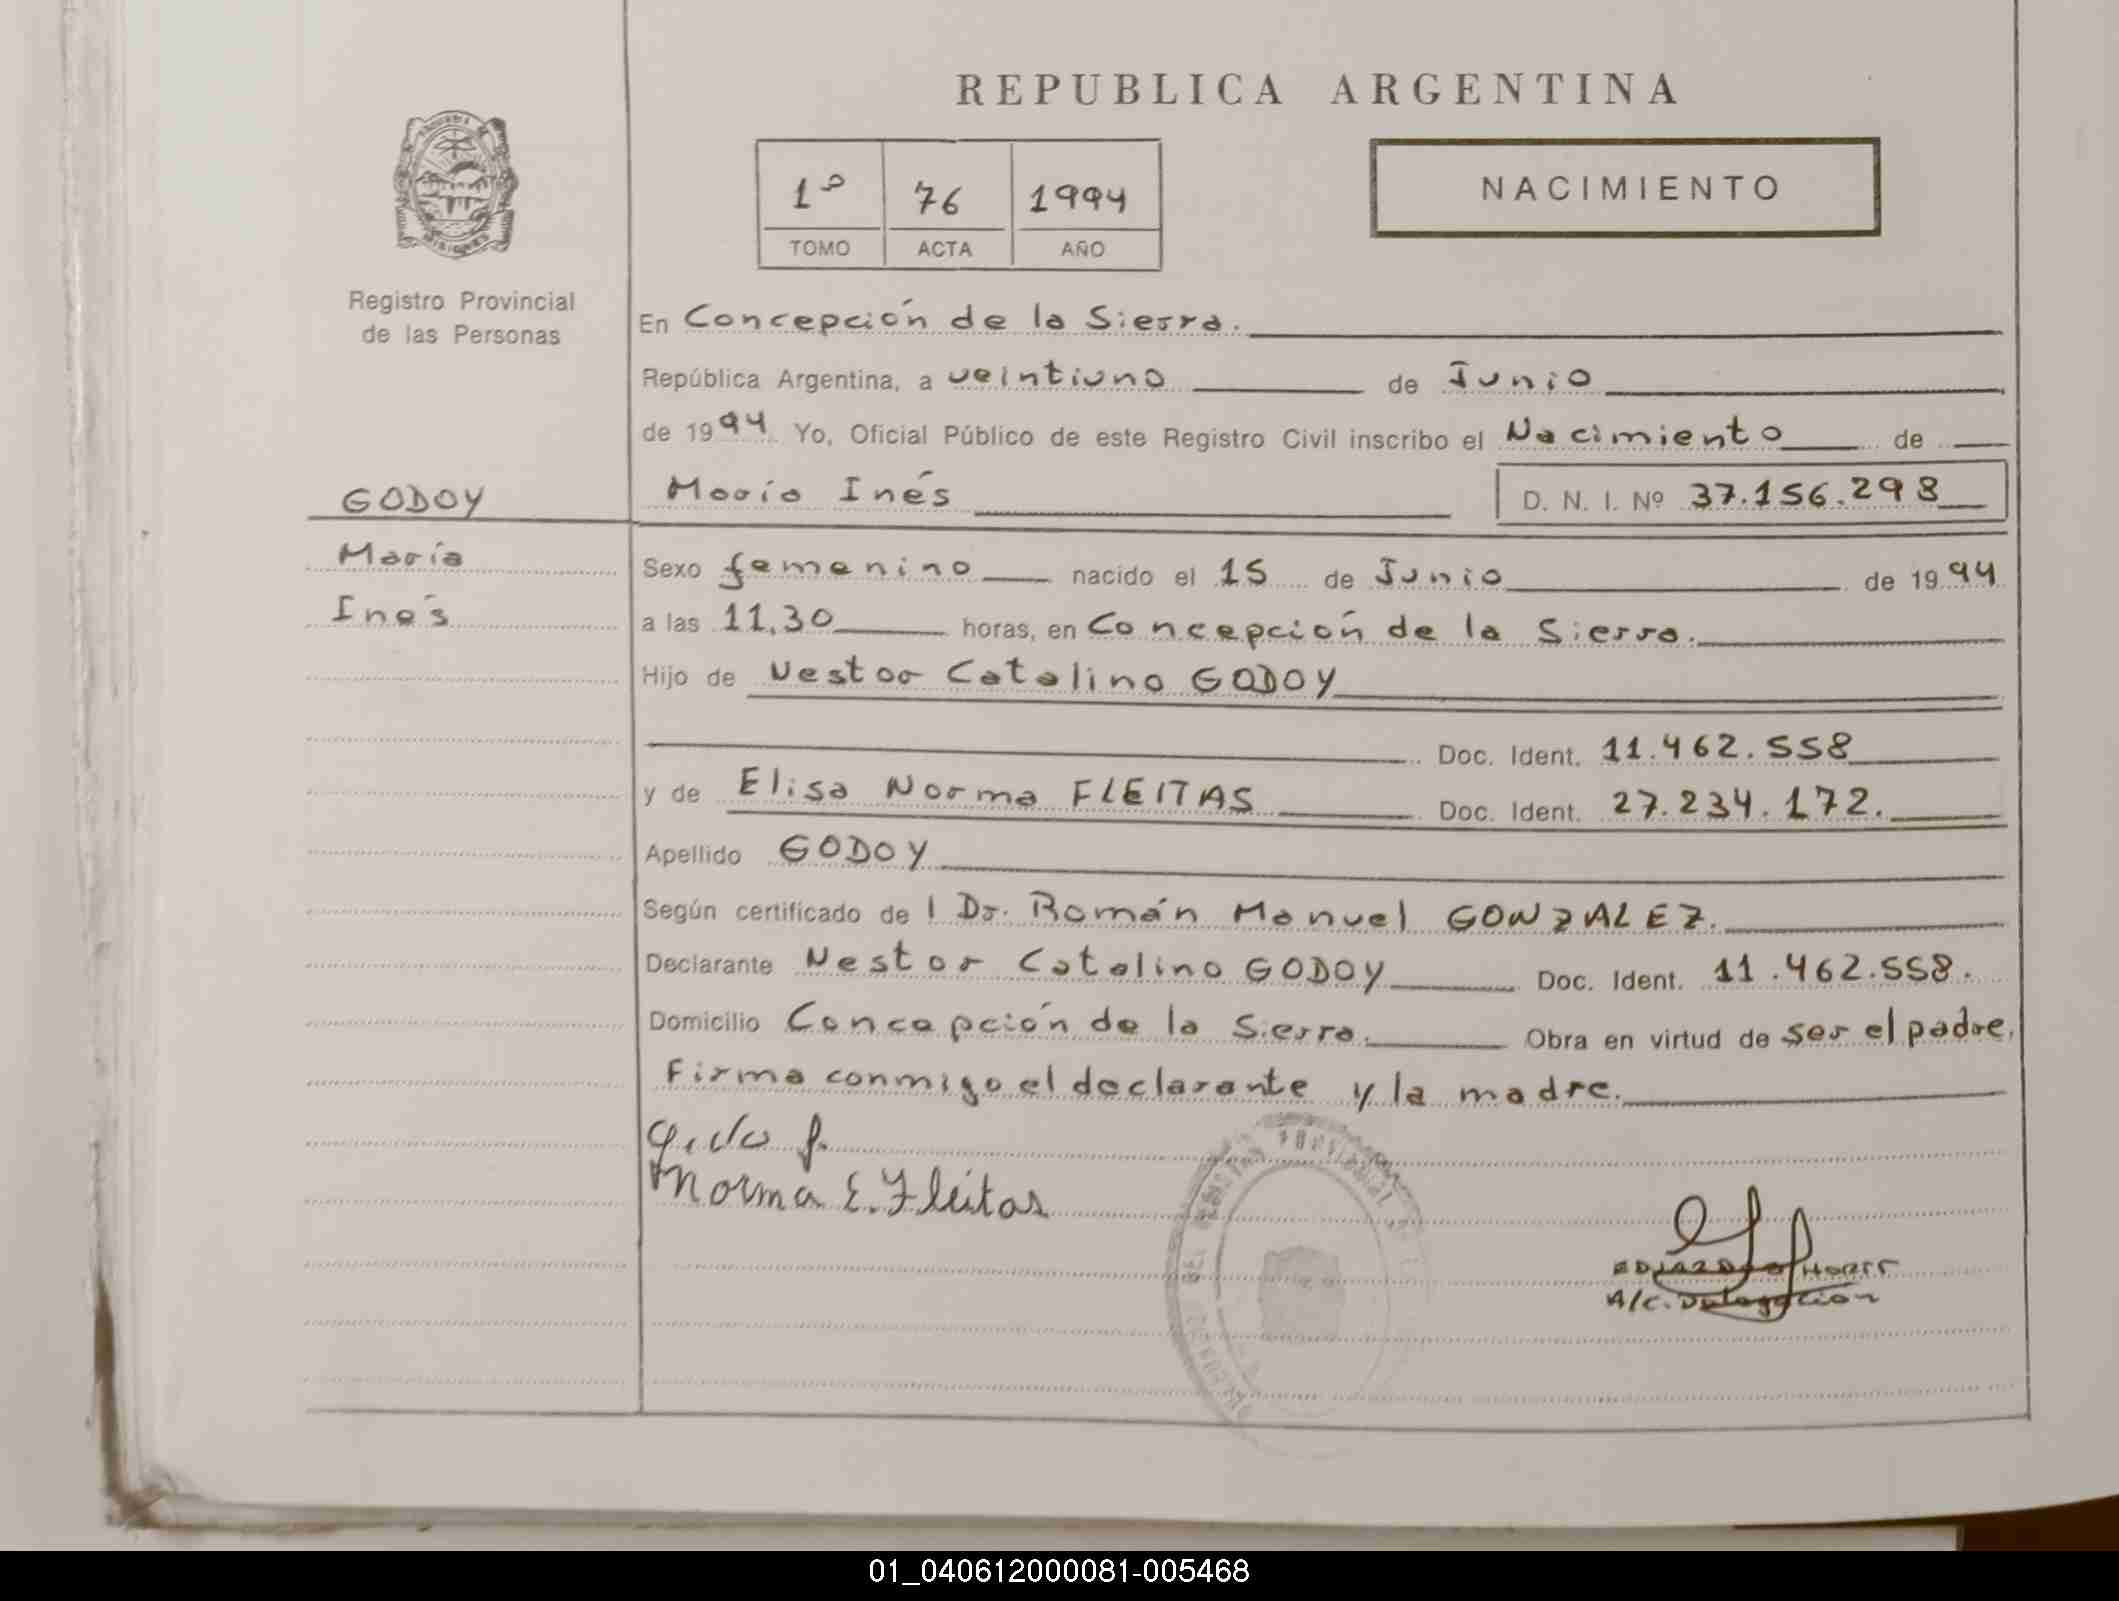 REPUBLICA ARGENTINA
1º 76 1994
TOMO ACTA AÑO
NACIMIENTO
Registro Provincial
de las Personas
En Concepción de la Sierra.
República Argentina, a veintiuno de Junio
de 1994 Yo, Oficial Público de este Registro Civil inscribo el Nacimiento de
GODOY
María Inés D. N. I. Nº 37.156.298
María
Inés
Sexo femenino nacido el 15 de Junio de 1994
a las 11,30 horas, en Concepción de la Sierra.
Hijo de Nestor Catalino GODOY
Doc. Ident. 11.462.558
y de Elisa Norma FLEITAS Doc. Ident. 27.234.172.
Apellido GODOY
Según certificado del Dr. Román Manuel GONZALEZ.
Declarante Nestor Catalino GODOY Doc. Ident. 11.462.558.
Domicilio Concepción de la Sierra. Obra en virtud de ser el padre.
Firma conmigo el declarante y la madre.
Norma E. Fleitas
A/C. Delegación
01_040612000081-005468